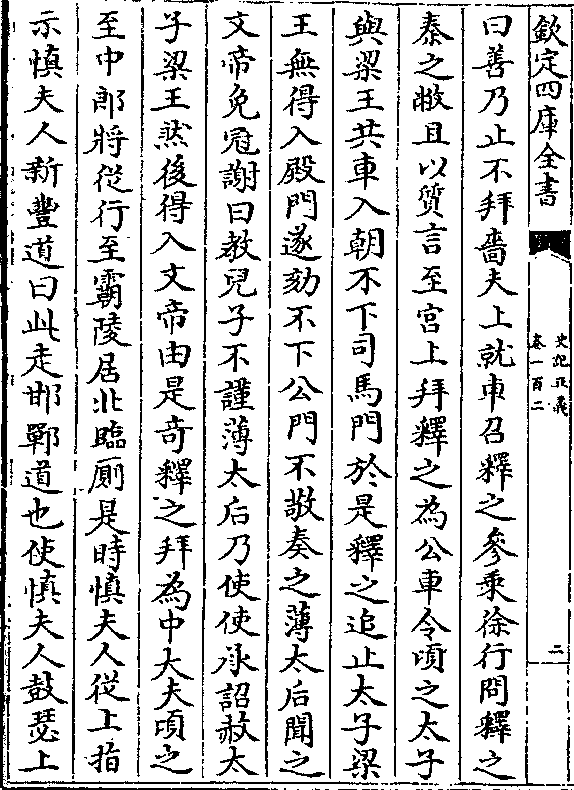 欽定四庫全書
史記正義
卷一百二
二
曰善乃止不拜嗇夫上就車召釋之參乘徐行問釋之
秦之敝且以質言至宮上拜釋之為公車令頃之太子
與梁王共車入朝不下司馬門於是釋之追止太子梁
王無得入殿門遂劾不下公門不敬奏之薄太后聞之
文帝免冠謝曰教兒子不謹薄太后乃使使承詔赦太
子梁王然後得入文帝由是奇釋之拜為中大夫頃之
至中郎將從行至霸陵居北臨厠是時慎夫人從上指
示慎夫人新豐道曰此走邯鄲道也使慎夫人鼓瑟上